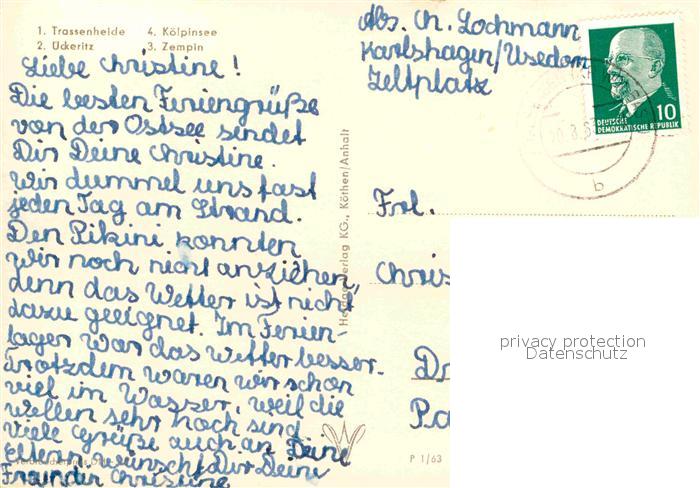 1. Trassenheide 4. Kölpinsee
2. Ückeritz 3. Zempin
Liebe Christine!
Die besten Feriengrüße
von der Ostsee sendet
Dir Deine Christine.
Wir dummel uns fast
jeden Tag am Strand.
Den Pikini konnten
wir noch nicht anziehen,
denn das Wetter ist nicht
dazu geeignet. Im Ferien-
lager war das Wetter besser.
Trotzdem waren wir schon
viel im Wasser, weil die
Wellen sehr hoch sind
Viele Grüße auch an Deine
Eltern, wünscht Dir Deine
Freundin Christine
Abs. Ch. Lochmann
Karlshagen/Usedom
Zeltplatz
10
DEUTSCHE
DEMOKRATISCHE REPUBLIK
b
KG., Köthen/Anhalt
Frl.
Chris
privacy protection
Datenschutz
P 1/63